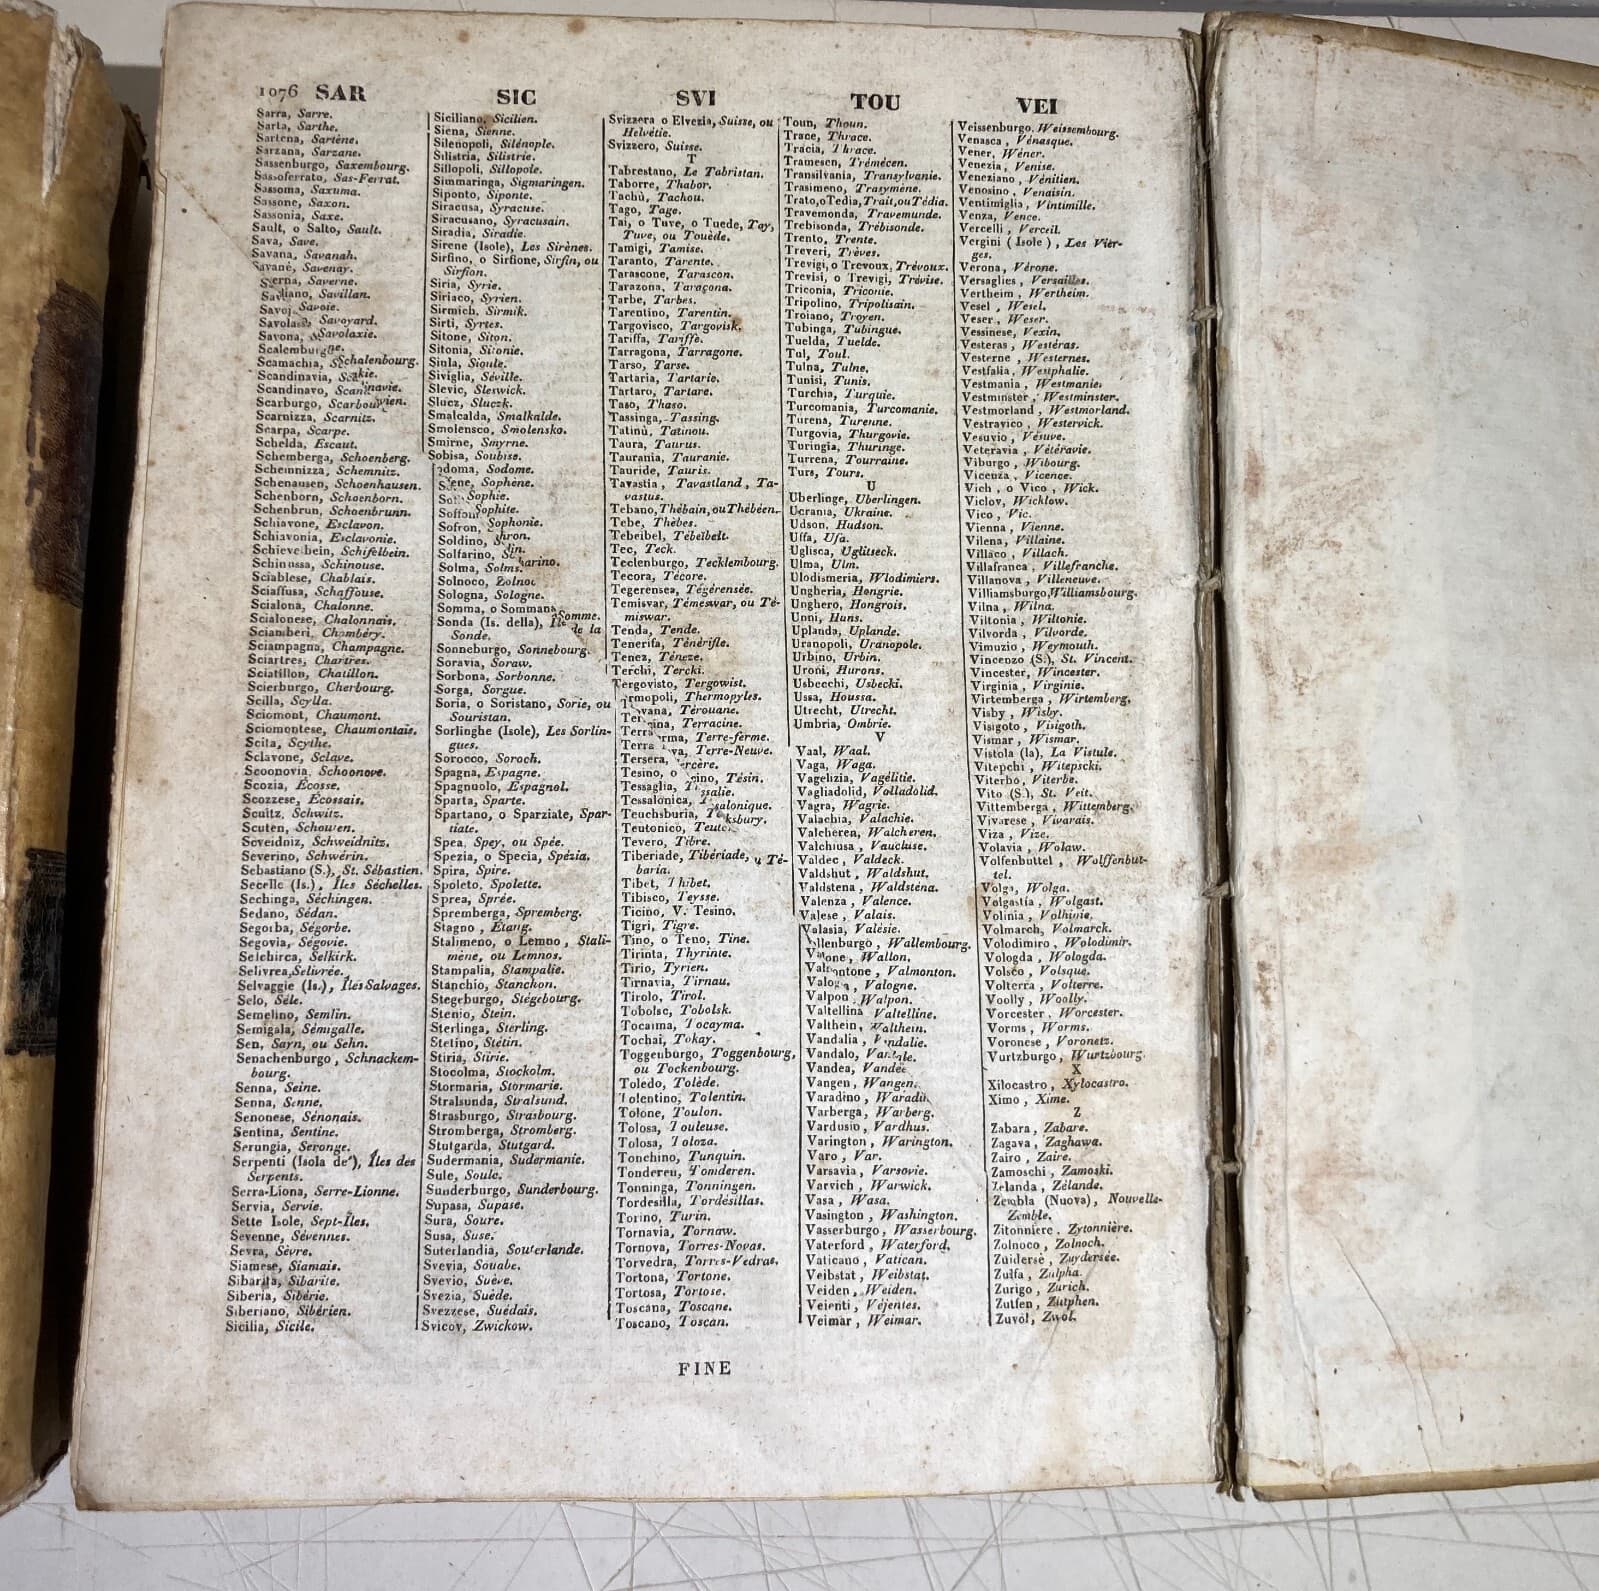 1076 SAR
Sarra, Sarre.
Sarta, Sarthe.
Sartena, Sartène.
Sarzana, Sarzane.
Sassenburgo, Saxembourg.
Sassoferrato, Sas-Ferrat.
Sassoma, Saxuma.
Sassone, Saxon.
Sassonia, Saxe.
Sault, o Salto, Sault.
Sava, Save.
Savana, Savanah.
Savané, Savenay.
Saverne.
Savillan.
Savoie.
Savoyard.
Savona, Savolaxie.
Schalenbourg.
Scamachia,
Scandinavia,
Scandinavo,
Scarburgo,
Scarnizza, Scarnitz.
Scarpa, Scarpe.
Schelda, Escaut.
Schemberga, Schoenberg.
Schemnizza, Schemnitz.
Schenausen, Schoenhausen.
Schenborn, Schoenborn.
Schenbrun, Schoenbrunn.
Schiavone, Esclavon.
Schiavonia, Esclavonie.
Schievelbein, Schifelbein.
Schinussa, Schinouse.
Sciablese, Chablais.
Sciaffusa, Schaffouse.
Scialona, Chalonne.
Scialonese, Chalonnais.
Sciamberi, Chambéry.
Sciampagna, Champagne.
Sciartres, Chartres.
Sciatillon, Chatillon.
Scierburgo, Cherbourg.
Scilla, Scylla.
Sciomont, Chaumont.
Sciomontese, Chaumontais.
Scita, Scythe.
Sclavone, Sclave.
Scoonovia, Schoonove.
Scozia, Écosse.
Scozzese, Écossais.
Scuitz, Schwitz.
Scuten, Schouven.
Scveidniz, Schweidnitz.
Severino, Schwérin.
Sebastiano (S.), St. Sébastien.
Secelle (Is.), Îles Séchelles.
Sechinga, Séchingen.
Sedano, Sédan.
Segorba, Ségorbe.
Segovia, Ségovie.
Selchirca, Selkirk.
Selivrea, Selivrée.
Selvaggie (Is.), Îles Salvages.
Selo, Séle.
Semelino, Semlin.
Semigala, Sémigalle.
Sen, Sayn, ou Sehn.
Senachenburgo, Schnackem-
bourg.
Senna, Seine.
Senna, Senne.
Senonese, Sénonais.
Sentina, Sentine.
Serungia, Seronge.
Serpenti (Isola de'), Îles des
Serpents.
Serra-Liona, Serre-Lionne.
Servia, Servie.
Sette Isole, Sept-Îles.
Sevenne, Sévennes.
Sevra, Sèvre.
Siamese, Siamais.
Sibarita, Sibarite.
Siberia, Sibérie.
Siberiano, Sibérien.
Sicilia, Sicile.
SIC
Siciliano, Sicilien.
Siena, Sienne.
Silenopoli, Silénople.
Silistria, Silistrie.
Sillopoli, Sillopole.
Simmaringa, Sigmaringen.
Siponto, Siponte.
Siracusa, Syracuse.
Siracusano, Syracusain.
Siradia, Siradie.
Sirene (Isole), Les Sirènes.
Sirfino, o Sirfione, Sirfin, ou
Sirfion.
Siria, Syrie.
Siriaco, Syrien.
Sirmich, Sirmik.
Sirti, Syrtes.
Sitone, Siton.
Sitonia, Sitonie.
Siula, Sioule.
Siviglia, Séville.
Slevic, Sleswick.
Slucz, Sluczk.
Smalcalda, Smalkalde.
Smolensco, Smolensko.
Smirne, Smyrne.
Sobisa, Soubise.
Sodome.
Sophène.
Sophie.
Sophite.
Sofron, Sophonie.
Soldino,
Solfarino,
Solma, Solms.
Solnoco,
Sologna, Sologne.
Somma, o Sommana, Somme.
Sonda (Is. della), de la
Sonde.
Sonneburgo, Sonnebourg.
Soravia, Soraw.
Sorbona, Sorbonne.
Sorga, Sorgue.
Soria, o Soristano, Sorie, ou
Souristan.
Sorlinghe (Isole), Les Sorlin-
gues.
Sorocco, Soroch.
Spagna, Espagne.
Spagnuolo, Espagnol.
Sparta, Sparte.
Spartano, o Sparziate, Spar-
tiate.
Spea, Spey, ou Spée.
Spezia, o Specia, Spézia.
Spira, Spire.
Spoleto, Spolette.
Sprea, Sprée.
Spremberga, Spremberg.
Stagno, Étang.
Stalimeno, o Lemno, Stali-
mène, ou Lemnos.
Stampalia, Stampalie.
Stanchio, Stanchon.
Stegeburgo, Stégebourg.
Stenio, Stein.
Sterlinga, Sterling.
Stetino, Stétin.
Stiria, Stirie.
Stocolma, Stockolm.
Stormaria, Stormarie.
Stralsunda, Stralsund.
Strasburgo, Strasbourg.
Stromberga, Stromberg.
Stutgarda, Stutgard.
Sudermania, Sudermanie.
Sule, Soule.
Sunderburgo, Sunderbourg.
Supasa, Supase.
Sura, Soure.
Susa, Suse.
Suterlandia, Souterlande.
Svevia, Souabe.
Svevio, Suève.
Svezia, Suède.
Svezzese, Suédais.
Svicov, Zwickow.
SVI
Svizzera o Elvezia, Suisse, ou
Helvétie.
Svizzero, Suisse.
T
Tabrestano, Le Tabristan.
Taborre, Thabor.
Tachù, Tachou.
Tago, Tage.
Tai, o Tuve, o Tuede, Tay,
Tuve, ou Touède.
Tamigi, Tamise.
Taranto, Tarente.
Tarascone, Tarascon.
Tarazona, Taraçona.
Tarbe, Tarbes.
Tarentino, Tarentin.
Targovisco, Targovisk.
Tariffa, Tariffe.
Tarragona, Tarragone.
Tarso, Tarse.
Tartaria, Tartarie.
Tartaro, Tartare.
Taso, Thaso.
Tassinga, Tassing.
Tatinù, Tatinou.
Taura, Taurus.
Taurania, Tauranie.
Tauride, Tauris.
Tavastia, Tavastland, Ta-
vastus.
Tebano, Thébain, ou Thébéen.
Tebe, Thèbes.
Tebeibel, Tébelbelt.
Tec, Teck.
Teclenburgo, Tecklembourg.
Tecora, Técore.
Tegerensea, Tégérensée.
Temisvar, Témeswar, ou Té-
miswar.
Tenda, Tende.
Tenerifa, Ténérifle.
Tenez, Téneze.
Terchi, Tercki.
Tergovisto, Tergowist.
Thermopyles.
Térouane.
Terracine.
Terre-ferme.
Terre-Neuve.
Tersera,
Tesino, o Tésin.
Tessaglia,
Tessalonica,
Teuchsburia,
Teutonico,
Tevero, Tibre.
Tiberiade, Tibériade, u Té-
baria.
Tibet, Thibet.
Tibisco, Teysse.
Ticino, V. Tesino.
Tigri, Tigre.
Tino, o Teno, Tine.
Tirinta, Thyrinte.
Tirio, Tyrien.
Tirnavia, Tirnau.
Tirolo, Tirol.
Tobolsc, Tobolsk.
Tocaima, Tocayma.
Tochai, Tokay.
Toggenburgo, Toggenbourg,
ou Tockenbourg.
Toledo, Tolède.
Tolentino, Tolentin.
Tolone, Toulon.
Tolosa, Touleuse.
Tolosa, Toloza.
Tonchino, Tunquin.
Tondereu, Tomderen.
Tonninga, Tonningen.
Tordesilla, Tordésillas.
Torino, Turin.
Tornavia, Tornaw.
Tornova, Torres-Novas.
Torvedra, Torres-Vedras.
Tortona, Tortone.
Tortosa, Tortose.
Toscana, Toscane.
Toscano, Toscan.
TOU
Toun, Thoun.
Trace, Thrace.
Tracia, Thrace.
Tramesen, Trémécen.
Transilvania, Transylvanie.
Trasimeno, Trasymène.
Trato, o Tedia, Trait, ou Tédia.
Travemonda, Travemunde.
Trebisonda, Trébisonde.
Trento, Trente.
Treveri, Trèves.
Trevigi, o Trevoux, Trévoux.
Trevisi, o Trevigi, Trévise.
Triconia, Triconie.
Tripolino, Tripolisain.
Troiano, Troyen.
Tubinga, Tubingue.
Tuelda, Tuelde.
Tul, Toul.
Tulna, Tulne.
Tunisi, Tunis.
Turchia, Turquie.
Turcomania, Turcomanie.
Turena, Turenne.
Turgovia, Thurgovie.
Turingia, Thuringe.
Turrena, Tourraine.
Turs, Tours.
U
Uberlinge, Uberlingen.
Ucrania, Ukraine.
Udson, Hudson.
Uffa, Ufa.
Uglisca, Uglitseck.
Ulma, Ulm.
Ulodismeria, Wlodimiers.
Ungheria, Hongrie.
Unghero, Hongrois.
Unni, Huns.
Uplanda, Uplande.
Uranopoli, Uranopole.
Urbino, Urbin.
Uroni, Hurons.
Usbecchi, Usbecki.
Ussa, Houssa.
Utrecht, Utrecht.
Umbria, Ombrie.
V
Vaal, Waal.
Vaga, Waga.
Vagelizia, Vagélitie.
Vagliadolid, Valladolid.
Vagra, Wagrie.
Valachia, Valachie.
Valcheren, Walcheren.
Valchiusa, Vaucluse.
Valdec, Valdeck.
Valdshut, Waldshut.
Valdstena, Waldsténa.
Valenza, Valence.
Valese, Valais.
Valasia, Valésie.
Vallenburgo, Wallembourg.
Wallon.
Valmontone, Valmonton.
Valogna, Valogne.
Valpon, Walpon.
Valtellina, Valtelline.
Valthein, Walthein.
Vandalia, Vandalie.
Vandalo, Vandale.
Vandea, Vandée
Vangen, Wangen.
Varadino, Waradin
Varberga, Warberg.
Vardusio, Vardhus.
Varington, Warington.
Varo, Var.
Varsavia, Varsovie.
Varvich, Warwick.
Vasa, Wasa.
Vasington, Washington.
Vasserburgo, Wasserbourg.
Vaterford, Waterford.
Vaticano, Vatican.
Veibstat, Weibstat.
Veiden, Weiden.
Veienti, Véjentes.
Veimar, Weimar.
VEI
Veissenburgo, Weissembourg.
Venasca, Vénasque.
Vener, Wéner.
Venezia, Venise.
Veneziano, Vénitien.
Venosino, Venaisin.
Ventimiglia, Vintimille.
Venza, Vence.
Vercelli, Verceil.
Vergini (Isole), Les Vier-
ges.
Verona, Vérone.
Versaglies, Versailles.
Vertheim, Wertheim.
Vesel, Wesel.
Veser, Weser.
Vessinese, Vexin.
Vesteras, Westéras.
Vesterne, Westernes.
Vestfalia, Westphalie.
Vestmania, Westmanie.
Vestminster, Westminster.
Vestmorland, Westmorland.
Vestravico, Westervick.
Vesuvio, Vésuve.
Veteravia, Vétéravie.
Viburgo, Wibourg.
Vicenza, Vicence.
Vich, o Vico, Wick.
Viclov, Wicklow.
Vico, Vic.
Vienna, Vienne.
Vilena, Villaine.
Villaco, Villach.
Villafranca, Villefranche.
Villanova, Villeneuve.
Villiamsburgo, Williamsbourg.
Vilna, Wilna.
Viltonia, Wiltonie.
Vilvorda, Vilvorde.
Vimuzio, Weymouth.
Vincenzo (S.), St. Vincent.
Vincester, Wincester.
Virginia, Virginie.
Virtemberga, Wirtemberg.
Visby, Wisby.
Visigoto, Visigoth.
Vismar, Wismar.
Vistola (la), La Vistule.
Vitepchi, Witepscki.
Viterbo, Viterbe.
Vito (S.), St. Veit.
Vittemberga, Wittemberg.
Vivarese, Vivarais.
Viza, Vize.
Volavia, Wolaw.
Volfenbuttel, Wolffenbut-
tel.
Volga, Wolga.
Volgastia, Wolgast.
Volinia, Volhinie.
Volmarch, Volmarck.
Volodimiro, Wolodimir.
Vologda, Wologda.
Volsco, Volsque.
Volterra, Volterre.
Voolly, Woolly.
Vorcester, Worcester.
Vorms, Worms.
Voronese, Voronetz.
Vurtzburgo, Wurtzbourg.
X
Xilocastro, Xylocastro.
Ximo, Xime.
Z
Zabara, Zabare.
Zagava, Zaghawa.
Zairo, Zaire.
Zamoschi, Zamoski.
Zelanda, Zélande.
Zembla (Nuova), Nouvelle-
Zemble.
Zitonniere, Zytonnière.
Zolnoco, Zolnoch.
Zuidersè, Zuydersée.
Zulfa, Zulpha.
Zurigo, Zurich.
Zutfen, Zutphen.
Zuvol, Zwol.
FINE